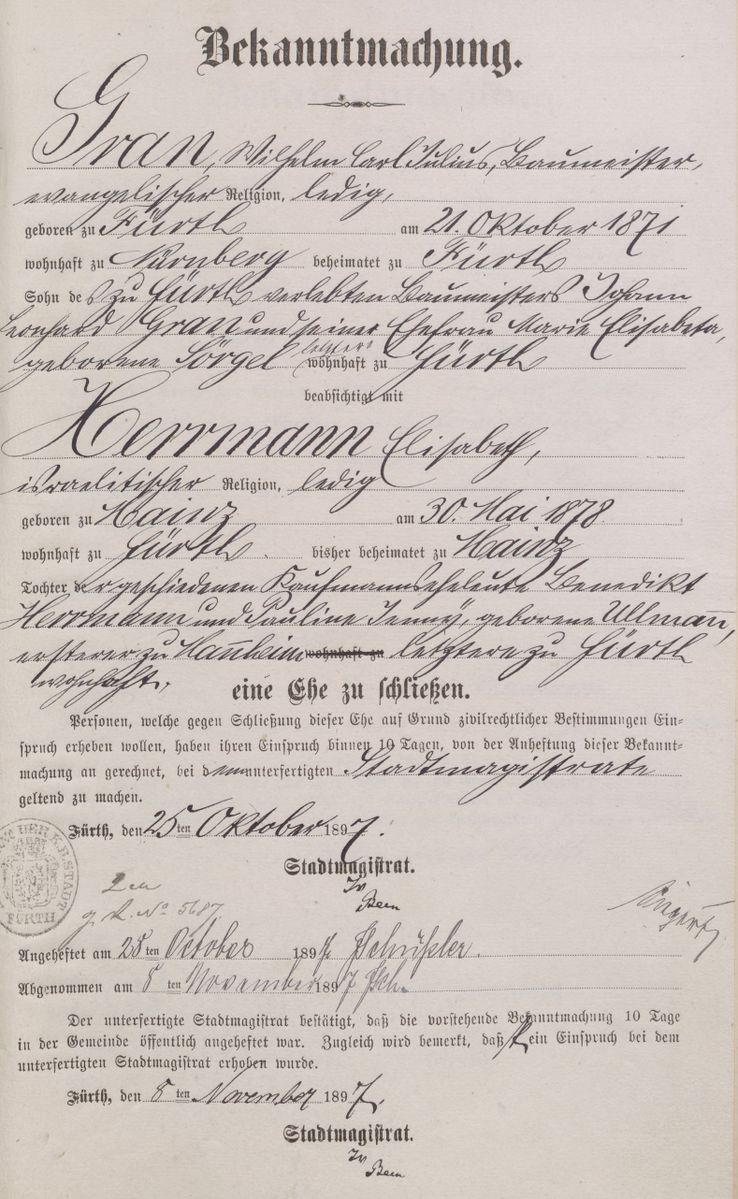 Bekanntmachung.
Gran, Wilhelm Carl Julius, Baumeister,
evangelischer Religion, ledig,
geboren zu Fürth am 21. Oktober 1871
wohnhaft zu Nürnberg beheimatet zu Fürth
Sohn des zu Fürth verlebten Baumeisters Johann
Leonhard Gran und seiner Ehefrau Marie Elisabeta,
geborene Sörgel letztere wohnhaft zu Fürth
beabsichtigt mit
Herrmann Elisabeth,
israelitischer Religion, ledig
geboren zu Mainz am 30. Mai 1878
wohnhaft zu Fürth. bisher beheimatet zu Mainz
Tochter der geschiedenen Kaufmannseheleute Benedikt
Herrmann und Pauline Jenny, geborene Ullmann,
ersterer zu Mannheim wohnhaft zu letztere zu Fürth
wohnhaft,
eine Ehe zu schließen.
Personen, welche gegen Schließung dieser Ehe auf Grund zivilrechtlicher Bestimmungen Ein-
spruch erheben wollen, haben ihren Einspruch binnen 10 Tagen, von der Anheftung dieser Bekannt-
machung an gerechnet, bei dem unterfertigten Stadtmagistrate
geltend zu machen.
Fürth, den 25ten Oktober 1897.
Stadtmagistrat.
DER K.B. STADT FÜRTH
No 5687
Angeheftet am 28ten October 1897.
Abgenommen am 8ten November 1897 Sch.
Der unterfertigte Stadtmagistrat bestätigt, daß die vorstehende Bekanntmachung 10 Tage
in der Gemeinde öffentlich angeheftet war. Zugleich wird bemerkt, daß kein Einspruch bei dem
unterfertigten Stadtmagistrat erhoben wurde.
Fürth, den 8ten November 1897.
Stadtmagistrat.